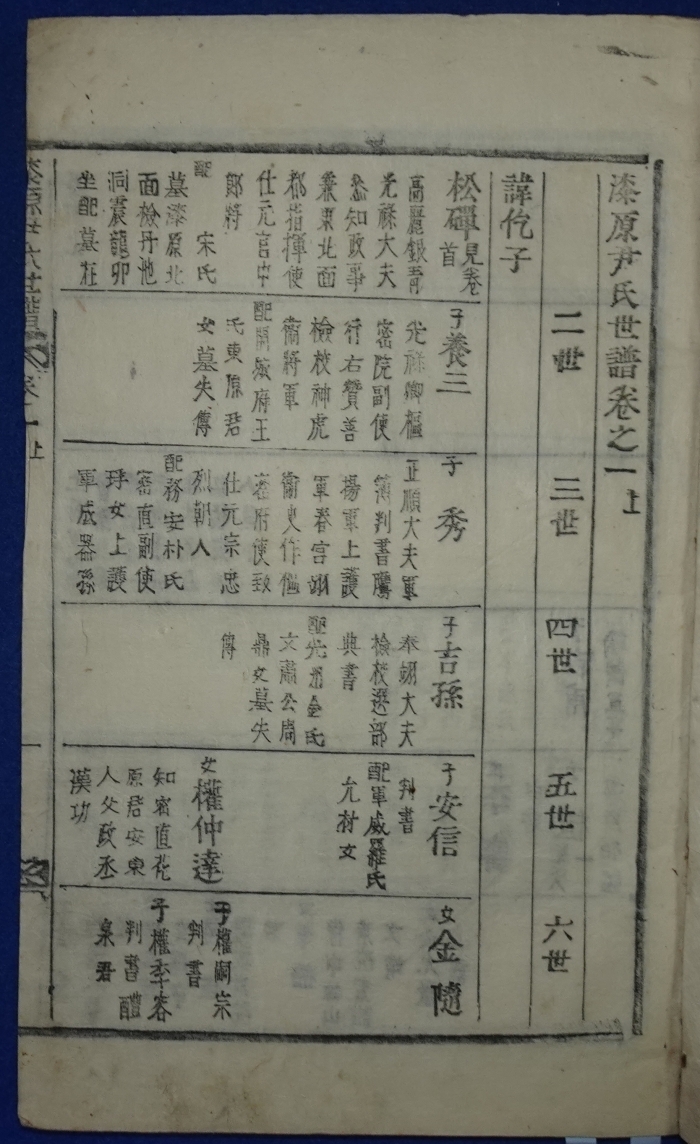 漆原尹氏世譜卷之一 上
二世
三世
四世
五世
六世
諱仡子
松碑 見卷首
高麗銀青
光祿大夫
叅知政事
兼東北面
都指揮使
仕元官中
郎將
配
宋氏
墓漆原北
面檢丹池
洞震龍卯
坐配墓在
子養三
光祿卿樞
密院副使
行右贊善
檢校神虎
衛將軍
配開城府王
氏東原君
女墓失傳
子秀
正順大夫軍
簿判書鷹
揚軍上護
軍春宮翊
衛史作僉
密府使致
仕元宗忠
烈朝人
配務安朴氏
密直副使
琈女上護
軍成器孫
子吉孫
奉翊大夫
檢校選部
典書
配光州金氏
文肅公周
鼎女墓失
傳
子安信
判書
配軍威羅氏
允材女
女權仲達
知密直花
原君安東
人父政丞
漢功
女金隨
子權嗣宗
判書
子權季容
判書醴
泉君